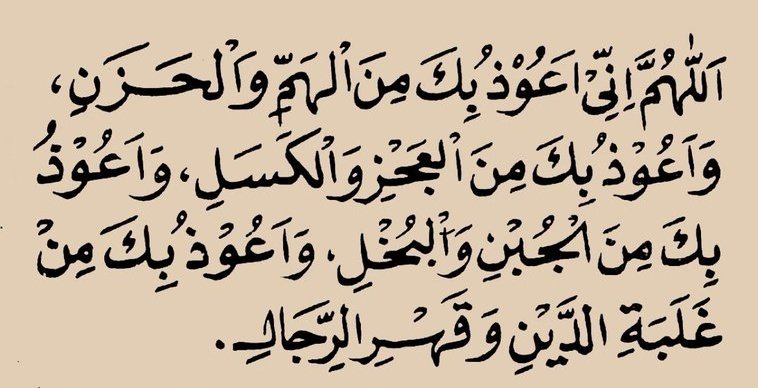 اَللّٰهُمَّ اِنِّيْ اَعُوْذُ بِكَ مِنَ الْهَمِّ وَالْحَزَنِ،
وَاَعُوْذُ بِكَ مِنَ الْعَجْزِ وَالْكَسَلِ، وَاَعُوْذُ
بِكَ مِنَ الْجُبْنِ وَالْبُخْلِ، وَاَعُوْذُ بِكَ مِنْ
غَلَبَةِ الدَّيْنِ وَقَهْرِ الرِّجَالِ.